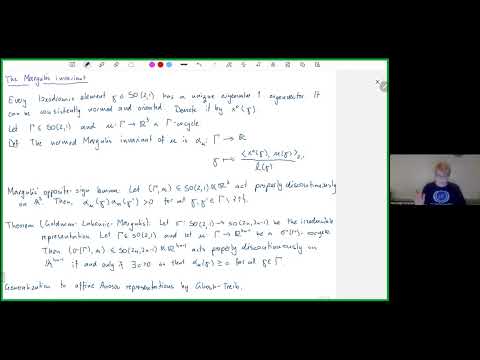 The Margulis invariant
Every loxodromic element γ ∈ SO(2,1) has a unique eigenvalue 1 eigenvector. It
can be consistently normed and oriented. Denote it by x⁰(γ)
Let Γ ≤ SO(2,1) and u: Γ → ℝ³ a Γ-cocycle
Def The normed Margulis invariant of u is α_u: Γ → ℝ
γ ↦ <x⁰(γ), u(γ)>₂,₁ / ℓ(γ)
Margulis' opposite-sign lemma: Let (Γ, u) ≤ SO(2,1) ⋉ ℝ³ act properly discontinuously
on 𝔸³. Then, α_u(γ) α_u(γ') > 0 for all γ, γ' ∈ Γ \ {e}.
Theorem (Goldman-Labourie-Margulis): Let σ: SO(2,1) → SO(2n, 2n-1) be the irreducible
representation. Let Γ ≤ SO(2,1) and let u: Γ → be a σ(Γ)-cocycle.
Then (σ(Γ), u) ≤ acts properly discontinuously on
if and only if ∃ so that α_u(γ) ≥ for all γ ∈ Γ
Generalization to affine Anosov representations by Ghosh-Treib.